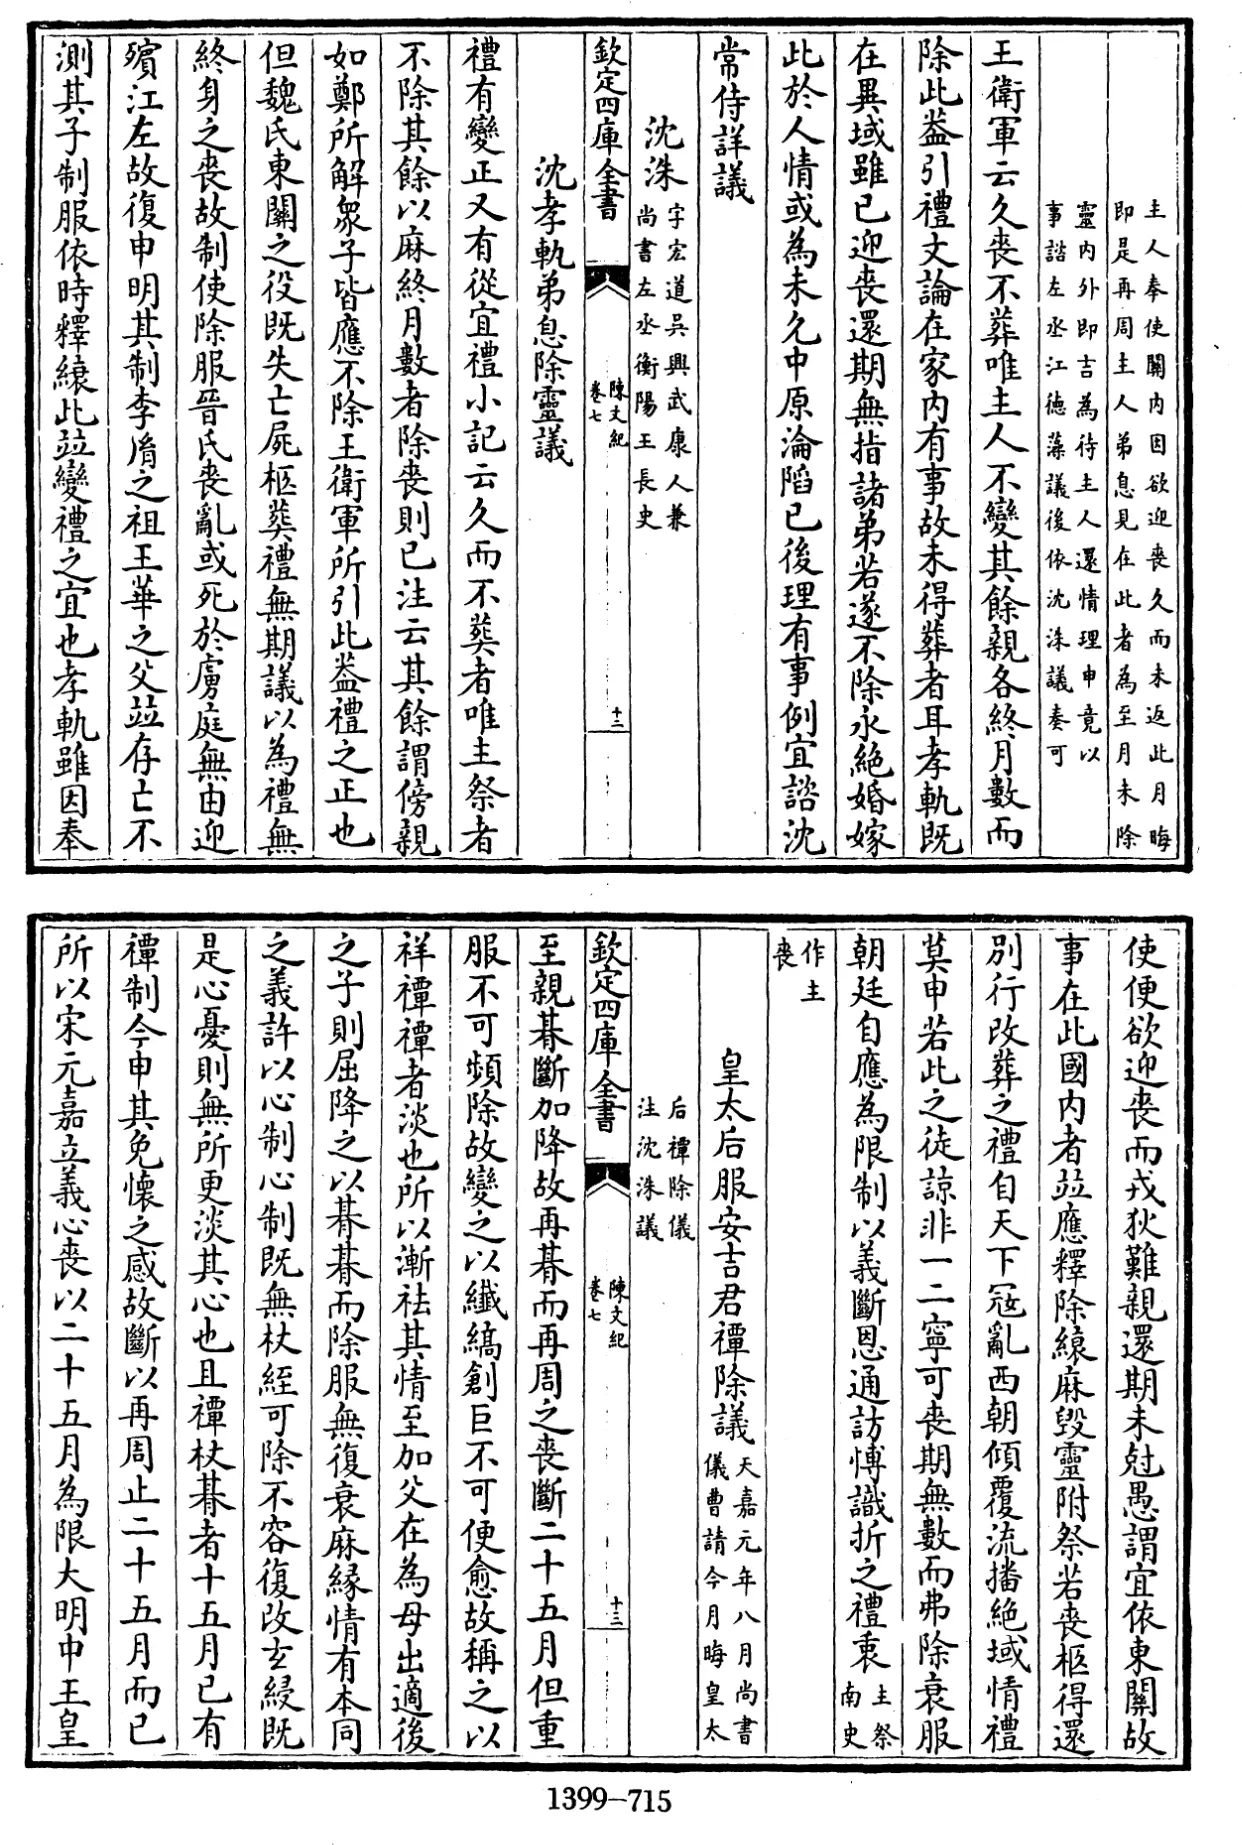 主人奉使關内因欲迎喪久而未返此月晦
即是再周主人弟息見在此者為至月未除
靈内外即吉為待主人還情理申竟以
事諮左丞江德藻議後依沈洙議奏可
王衛軍云久喪不葬唯主人不變其餘親各終月數而
除此葢引禮文論在家内有事故未得葬者耳孝軌既
在異域雖已迎喪還期無指諸弟若遂不除永絶婚嫁
此於人情或為未允中原淪陷已後理有事例宜諮沈
常侍詳議
沈洙
字宏道吳興武康人兼
尚書左丞衡陽王長史
欽定四庫全書
陳文紀
卷七
十二
沈孝軌弟息除靈議
禮有變正又有從宜禮小記云久而不葬者唯主祭者
不除其餘以麻終月數者除喪則已注云其餘謂傍親
如鄭所解衆子皆應不除王衛軍所引此葢禮之正也
但魏氏東關之役既失亡屍柩葬禮無期議以為禮無
終身之喪故制使除服晉氏喪亂或死於虜庭無由迎
殯江左故復申明其制李㣧之祖王華之父竝存亡不
測其子制服依時釋縗此竝變禮之宜也孝軌雖因奉
使便欲迎喪而戎狄難親還期未尅愚謂宜依東關故
事在此國内者竝應釋除縗麻毁靈附祭若喪柩得還
別行改葬之禮自天下寇亂西朝傾覆流播絶域情禮
莫申若此之徒諒非一二寧可喪期無數而弗除衰服
朝廷自應為限制以義斷恩通訪博識折之禮衷
主祭
南史
作主
喪
皇太后服安吉君禫除議
天嘉元年八月尚書
儀曹請今月晦皇太
后禫除儀
注沈洙議
欽定四庫全書
陳文紀
卷七
十三
至親朞斷加降故再朞而再周之喪斷二十五月但重
服不可頻除故變之以纖縞創巨不可便愈故稱之以
祥禫禫者淡也所以漸祛其情至加父在為母出適後
之子則屈降之以朞朞而除服無復衰麻縁情有本同
之義許以心制心制既無杖絰可除不容復改玄綅既
是心憂則無所更淡其心也且禫杖朞者十五月已有
禫制今申其免懷之感故斷以再周止二十五月而已
所以宋元嘉立義心喪以二十五月為限大明中王皇
1399-715